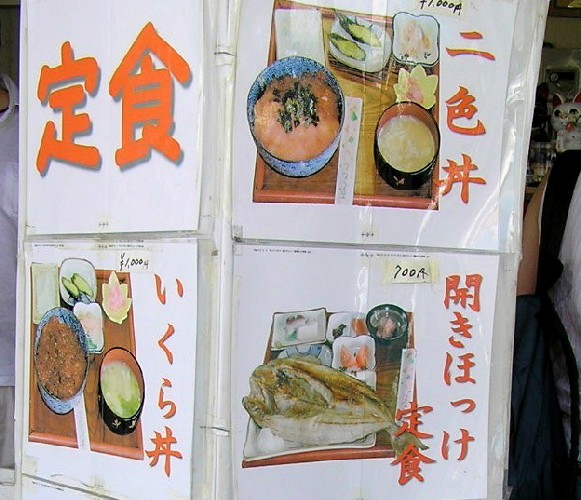 定食
¥1,000円
二色丼
¥1,000円
いくら丼
700円
開きほっけ
定食